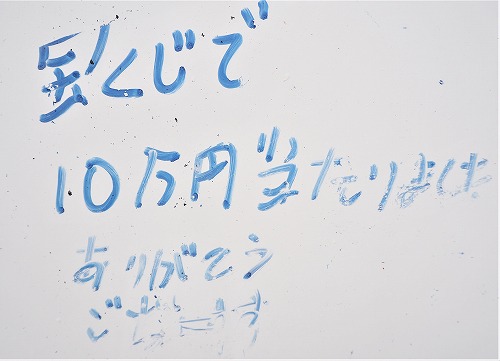 宝くじで
10万円当たりました
ありがとう
ございます